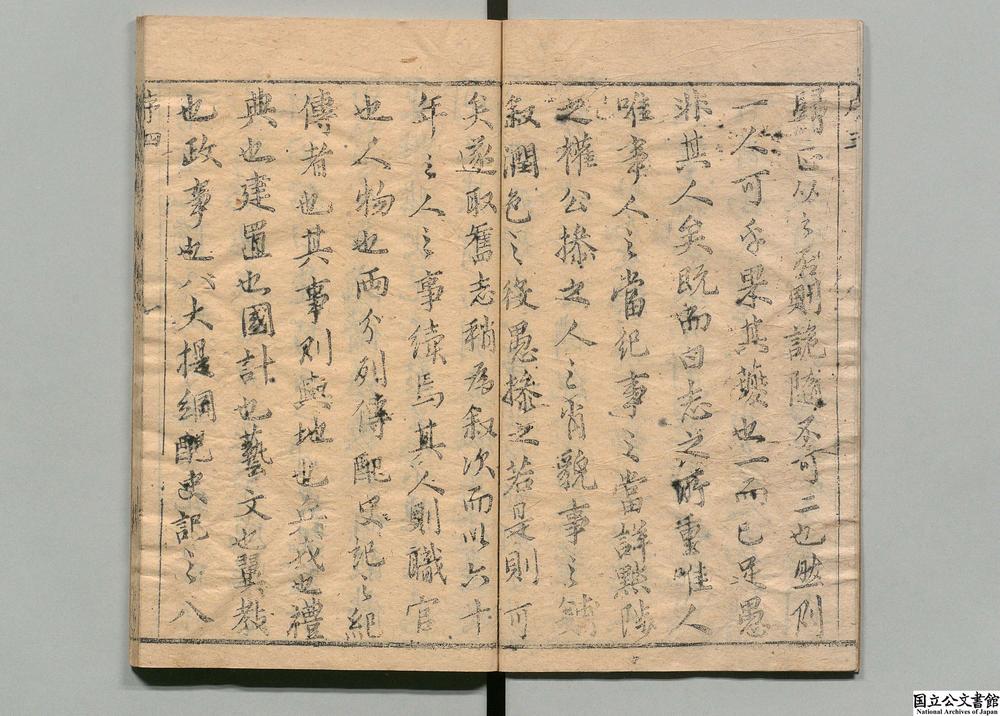 序三
歸正以之名則詭隨不可二也然則
一人可乎眾其難也一而已足愚
非其人矣既而曰志之所重唯人
唯事人之當紀事之當詳黜陟
之權公摻之人之肖貌事之
敘潤色之役愚摻之若是則可
矣遂取舊志稍為敘次而以六十
年之人之事續焉其人則職官
也人物也兩分列傳配史記之紀
傳者也其事則輿地也兵戎也禮
典也建置也國計也藝文也翼教
也政事也八大提綱配史記之八
序四
国立公文書館
National Archives of Japan